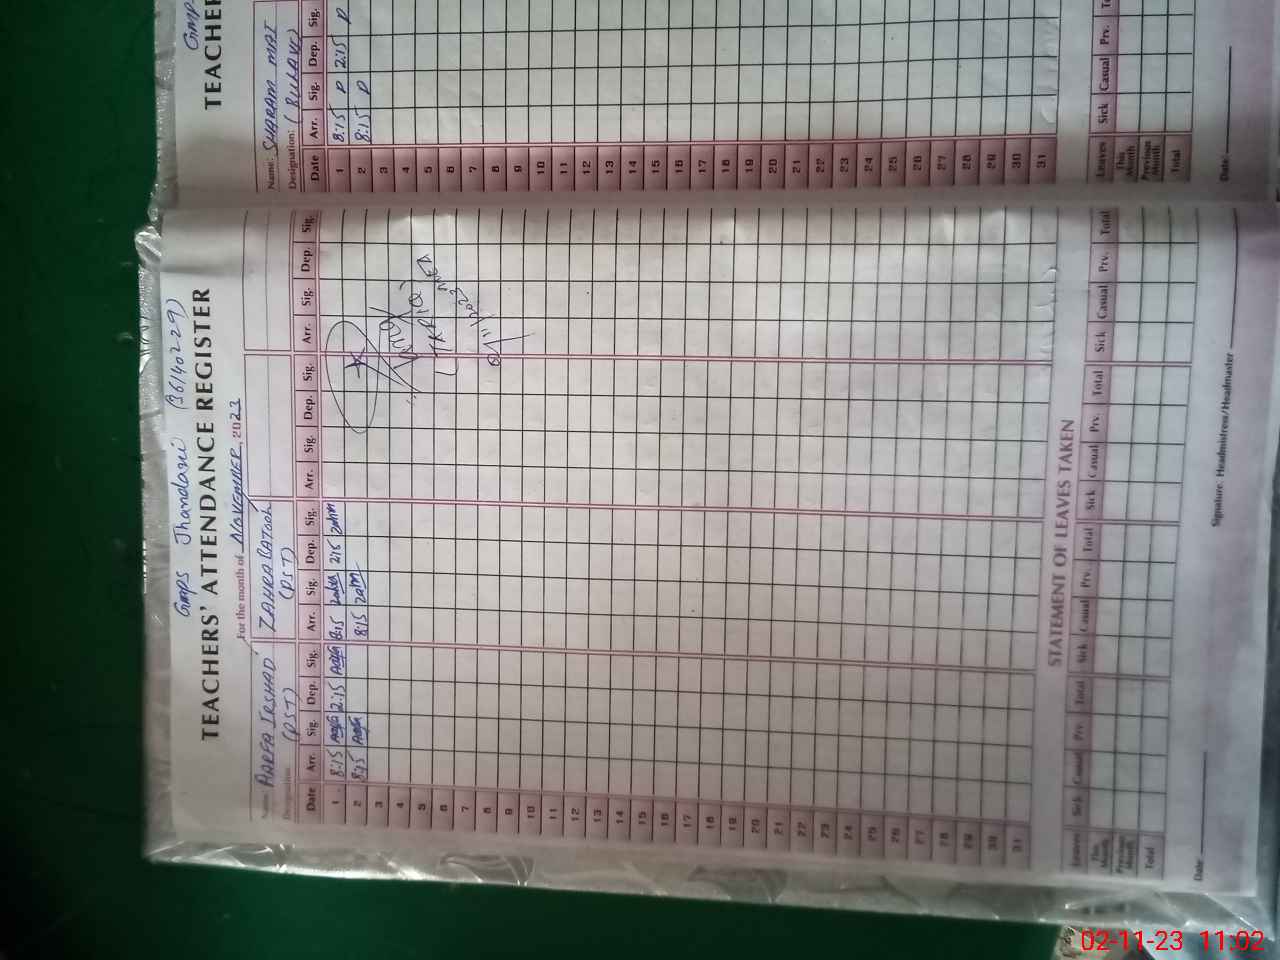 GMPS Jhandani (36140229)
TEACHERS' ATTENDANCE REGISTER
For the month of NOVEMBER, 2023
Name: AARFA IRSHAD ZAHRA BATOOL
Designation: (PST) (PST)
Date Arr. Sig. Dep. Sig. Arr. Sig. Dep. Sig. Arr. Sig. Dep. Sig. Arr. Sig. Dep. Sig.
1 8:15 Aarfa 2:15 Aarfa 8:15 2:15
2 8:15 Aarfa 8:15
3
4
5
6
7
8
9
10
11
12
13
14
15
16
17
18
19
20
21
22
23
24
25
26
27
28
29
30
31
TARIQ
MEA
2/11/2023
STATEMENT OF LEAVES TAKEN
Leaves Sick Casual Prv. Total Sick Casual Prv. Total Sick Casual Prv. Total Sick Casual Prv. Total
This Month
Previous Month
Total
Date: Signature Headmistress/Headmaster
GMP
TEACHER
Name:
Designation:
Date Arr. Sig. Dep. Sig.
1 8:15 P 2:15 P
2 8:15 P
3
4
5
6
7
8
9
10
11
12
13
14
15
16
17
18
19
20
21
22
23
24
25
26
27
28
29
30
31
Leaves Sick Casual Prv. To
This Month
Previous Month
Total
Date:
02-11-23 11:02